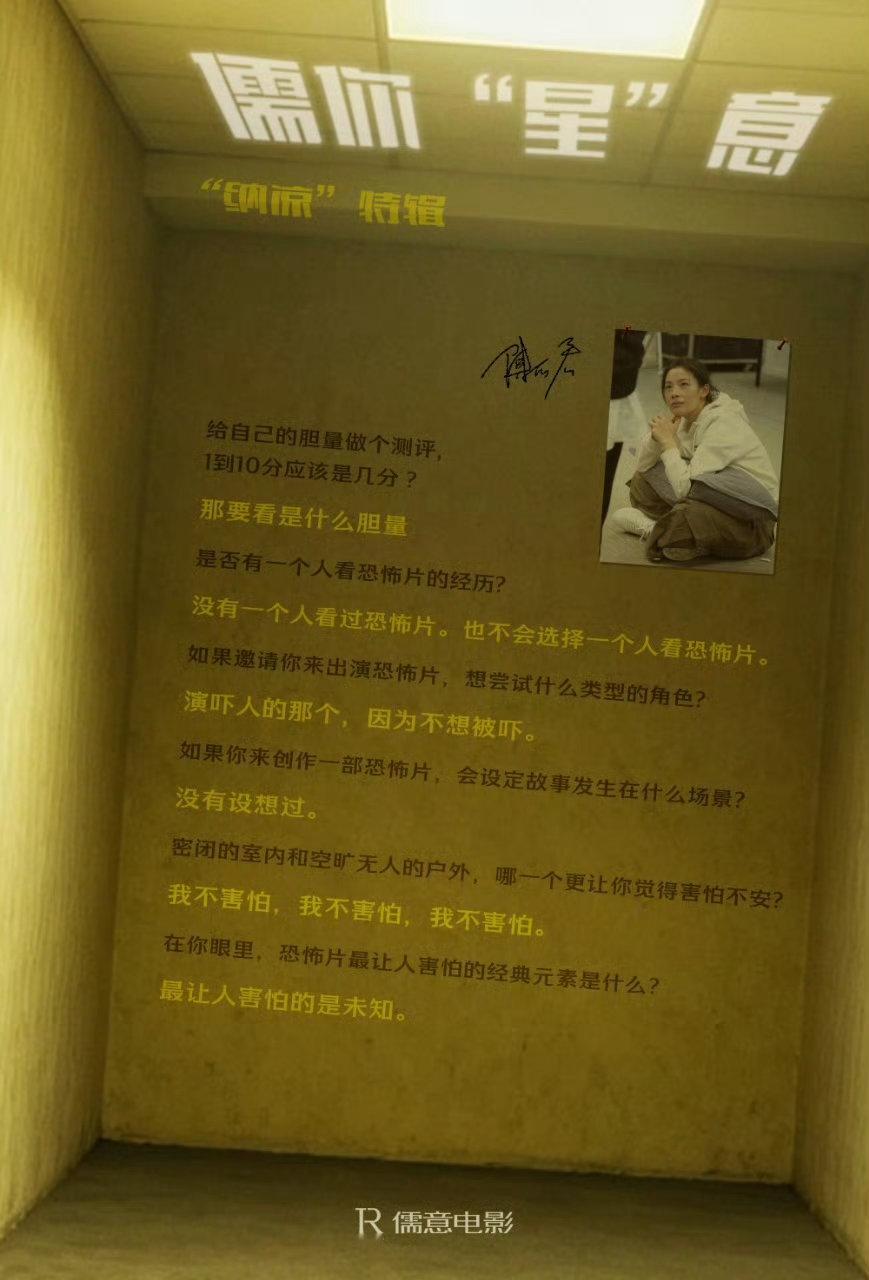 儒你“星”意
“纳凉”特辑
给自己的胆量做个测评，
1到10分应该是几分？
那要看是什么胆量
是否有一个人看恐怖片的经历？
没有一个人看过恐怖片。也不会选择一个人看恐怖片。
如果邀请你来出演恐怖片，想尝试什么类型的角色？
演吓人的那个，因为不想被吓。
如果你来创作一部恐怖片，会设定故事发生在什么场景？
没有设想过。
密闭的室内和空旷无人的户外，哪一个更让你觉得害怕不安？
我不害怕，我不害怕，我不害怕。
在你眼里，恐怖片最让人害怕的经典元素是什么？
最让人害怕的是未知。
儒意电影